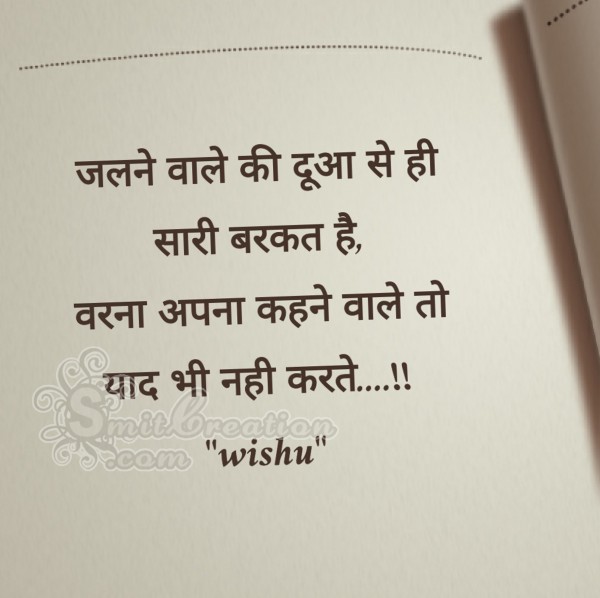 जलने वाले की दूआ से ही
सारी बरकत है,
वरना अपना कहने वाले तो
याद भी नही करते....!!
SmitCreation
.com
"wishu"